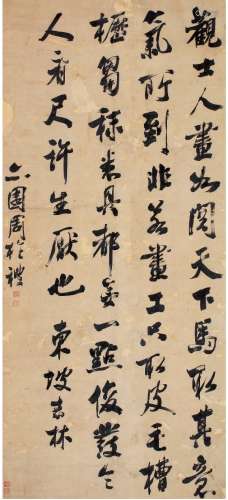 觀士人畫如閱天下馬取其意
氣所到非若畫工只取皮毛槽
櫪芻秣米具都無一點俊發令
人看尺許生厭也 東坡志林
亦園周於禮